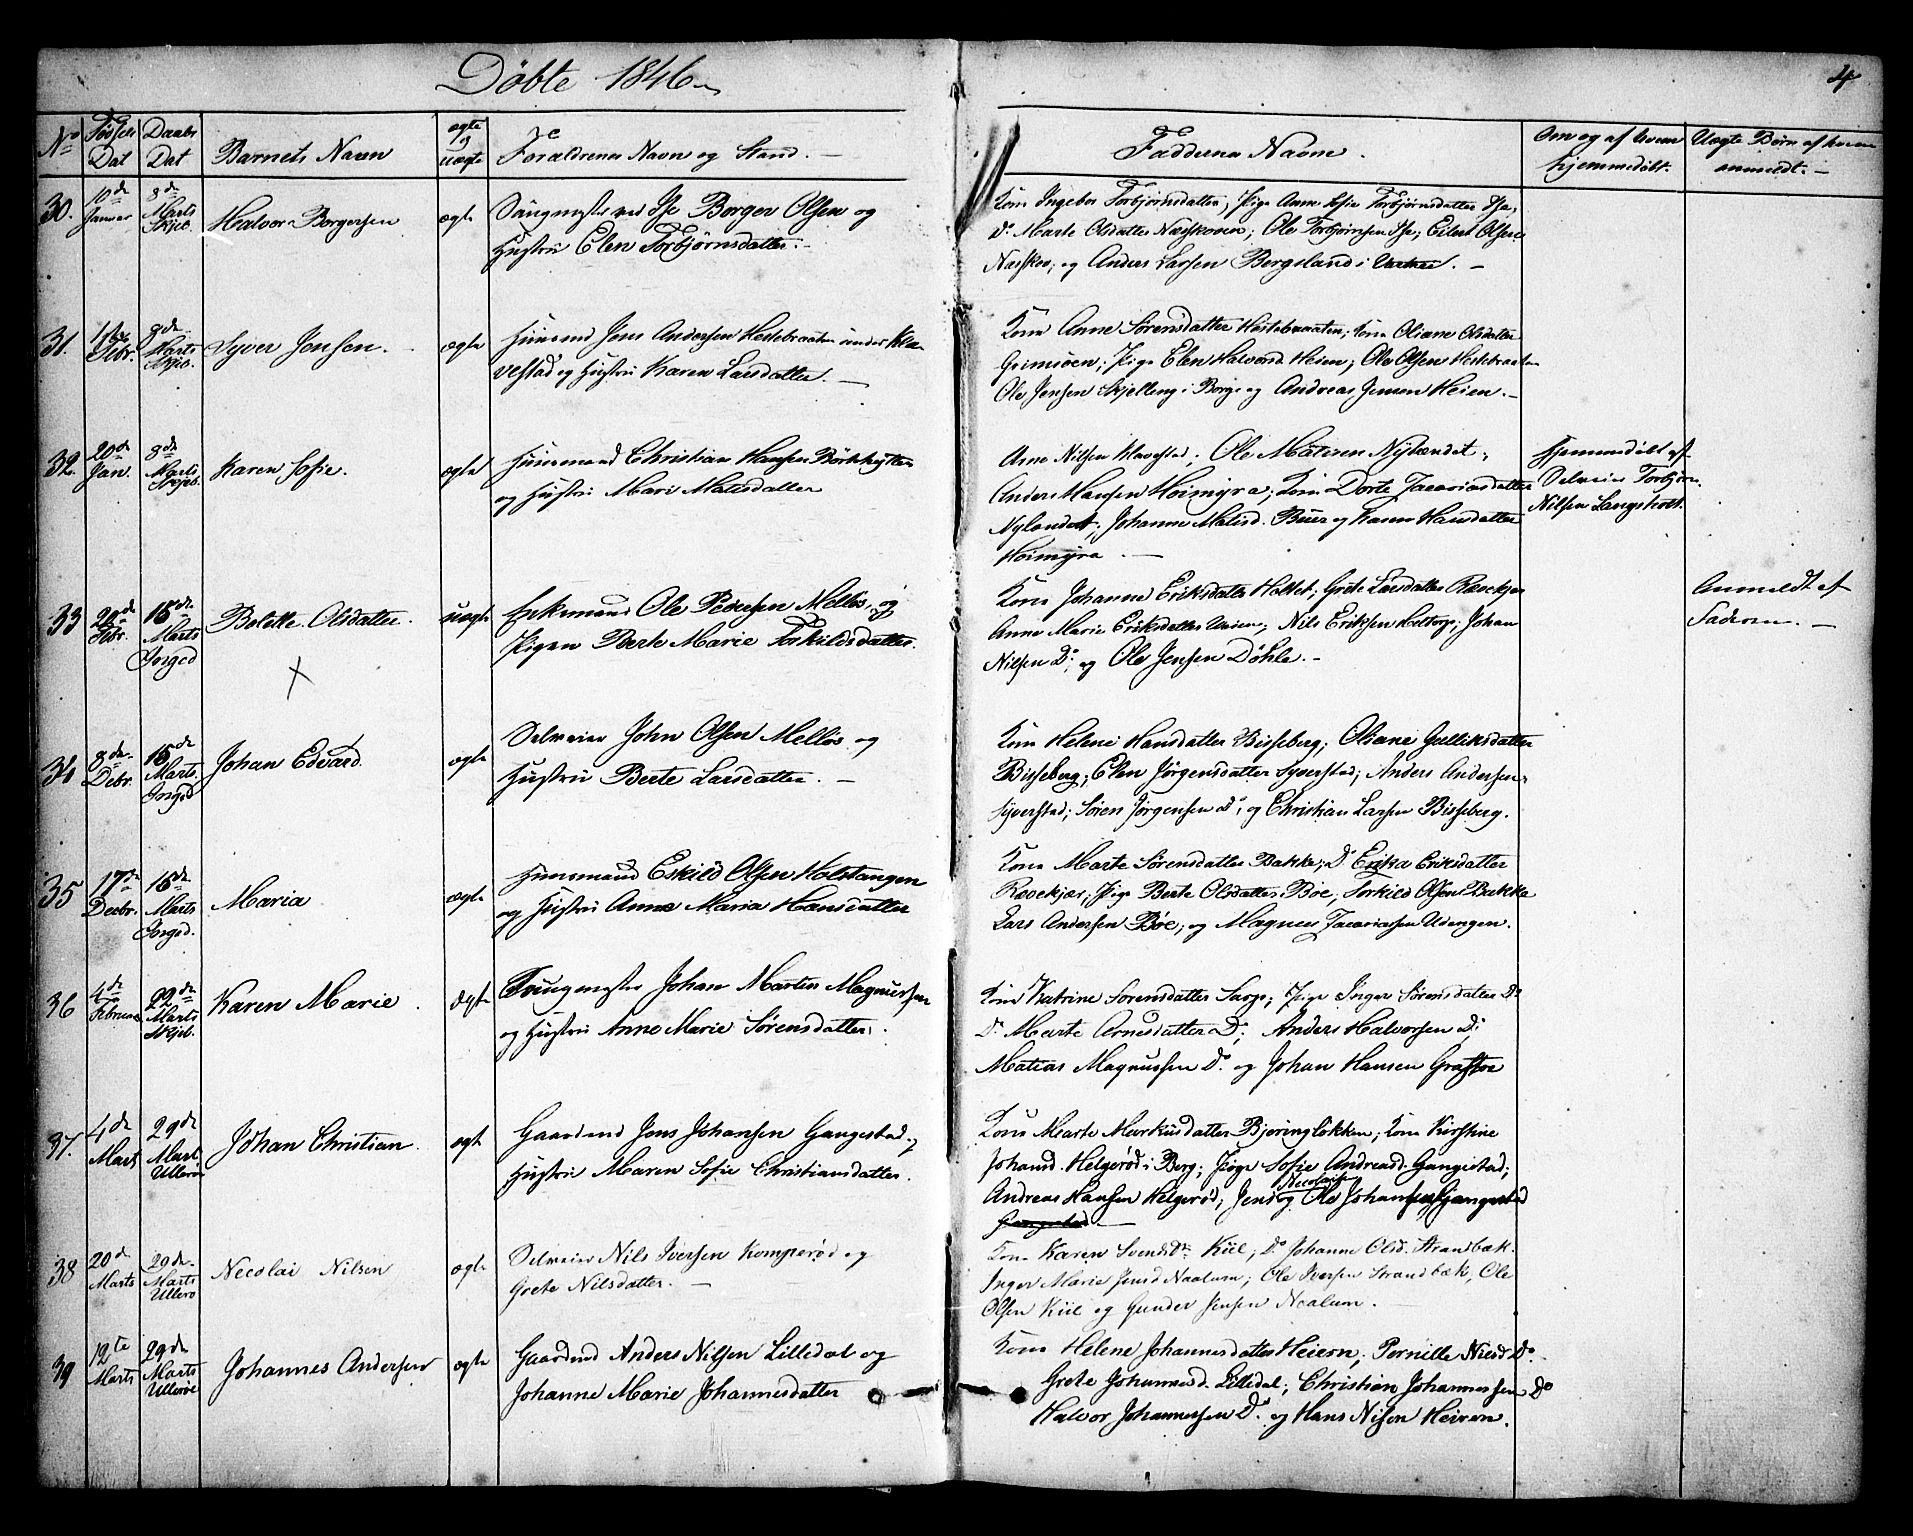 Døbte 1846
4
No
Fødsels Dat
Daabs Dat
Barnets Navn
ægte og uægte
Forældrenes Navn og Stand.
Faddernes Navne.
Om og af hvem hjemmedøbt.
Uægte Børn af hvem anmeldt.
30. 10de Januar 8de Marts Skjeb. Halvor Borgersen ægte
Saugmester ved Ise Borger Olsen og
Hustru Elen Torbjørnsdatter.
Kone Ingebor Torbjørnsdatter; Pige Anne Sofie Torbjørnsdatter Ise;
Do Marte Olsdatter Næsskoven; Ole Torbjørnsen Ise; Eilert Olsen
Næsskov; og Anders Larsen Bergsland i
31. Febr. 8de Marts Skjeb. Syver Jensen. ægte
Huusmand Jens Andersen Hestebraaten under Kla-
vestad og Hustru Karen Larsdatter.
Kone Anne Sørensdatter Hestebraaten; Kone Oliane Olsdatter
Grimsøen; Pige Elen Halvorsd. Heien; Ole Olsen Hestebraaten
Ole Jensen Skjelleng i Borge og Andreas Jensen Heien.
32. 20de Jan. 8de Marts Skjeb. Karen Sofie. ægte
Huusmand Christian Hansen Børkehytten
og Hustru Mari Matisdatter
Arne Nilsen Klavestad; Ole Mat Nylændet;
Anders Hansen Høimyra; Kone Dorte Zacariasdatter
Nylændet; Johanne Matisd. Buer og Karen Hansdatter
Høimyra.
Hjemmedøbt af
Selveier Torbjørn
Nilsen Langsholt.
33 20de Febr. 15de Marts Inged Bolette Olsdatter. uægte
Enkemand Ole Pedersen Melløs og
Pigen Berte Marie Torkildsdatter.
Kone Johanne Eriksdatter Holtet; Grete Larsdatter Rævekjær
Anne Marie Eriksdatter; Nils Eriksen Haltorp; Johan
Nilsen Do; og Ole Jensen Døhle.
Anmeldt af
Faderen.
34 8de Debr. 15de Marts Inged Johan Edvard. ægte
Selveier John Olsen Melløs og
Hustru Berte Larsdatter.
Kone Helene Hansdatter Bisseberg; Oliane Gulliksdatter
Bisseberg; Elen Jørgensdatter Syverstad; Anders Andersen
Syverstad; Søren Jørgensen Do; og Christian Larsen Bisseberg.
35 17de Decbr. 15de Marts Inged. Maria ægte
Huusmand Eskild Olsen Holstangen
og Hustru Anne Maria Hansdatter
Kone Marte Sørensdatter Bakke; Do Erika Eriksdatter
Rævekjær; Pige Berte Olsdatter Bøe, Torkild Olsen Bakke
Lars Andersen Bøe; og Magnus Zacariassen Udengen.
36 4de Februar 22de Marts Skjeb. Karen Marie. ægte
Tvingmester Johan Martin Magnussen
og Hustru Anne Marie Sørensdatter.
Kone Katrine Sørensdatter Sarp; Pige Inger Sørensdatter Do
Do Marte Arnesdatter Do; Anders Halvorsen Do;
Matias Magnussen Do og Johan Hansen
37. 4de Mart 29de Mart Ullerøe Johan Christian. ægte
Gaardmd Jens Johansen Gangestad og
Hustru Maren Sofie Christiansdatter.
Kone Marte Markusdatter Bjørningløkken; Kone Kirstine
Johansd. Helgerød i Berg; Pige Sofie Andreasd. Gangestad;
Andreas Hansen Helgerød; Jens Nicolais. og Ole Johansen Gjangestad
38 20de Marts 29de Marts Ullerø Necolai Nilsen ægte
Selveier Nils Iversen Komperød og
Grete Nilsdatter.
Kone Karen Svendsdtr Kiil; Do Johanne Olsd. Strandbæk.
Inger Marie Jensd Naalum; Ole Iversen Strandbæk, Ole
Olsen Kiil og Gunder Jensen Naalum.
39 12te Marts 29de Marts Ullerøe Johannes Andersen ægte
Gaardmd Anders Nilsen Lilledal og
Johanne Marie Johannesdatter
Kone Helene Johannesdatter Heieren; Pernille Nilsd Do.
Grete Johannesd. Lilledal; Christian Johannessen Do
Halvor Johannessen Do og Hans Nilsen Heieren.